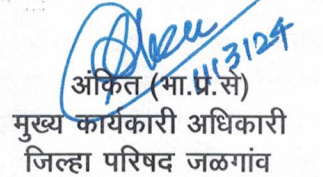 11/3/24
अंकित (भा.प्र.से)
मुख्य कार्यकारी अधिकारी
जिल्हा परिषद जळगांव